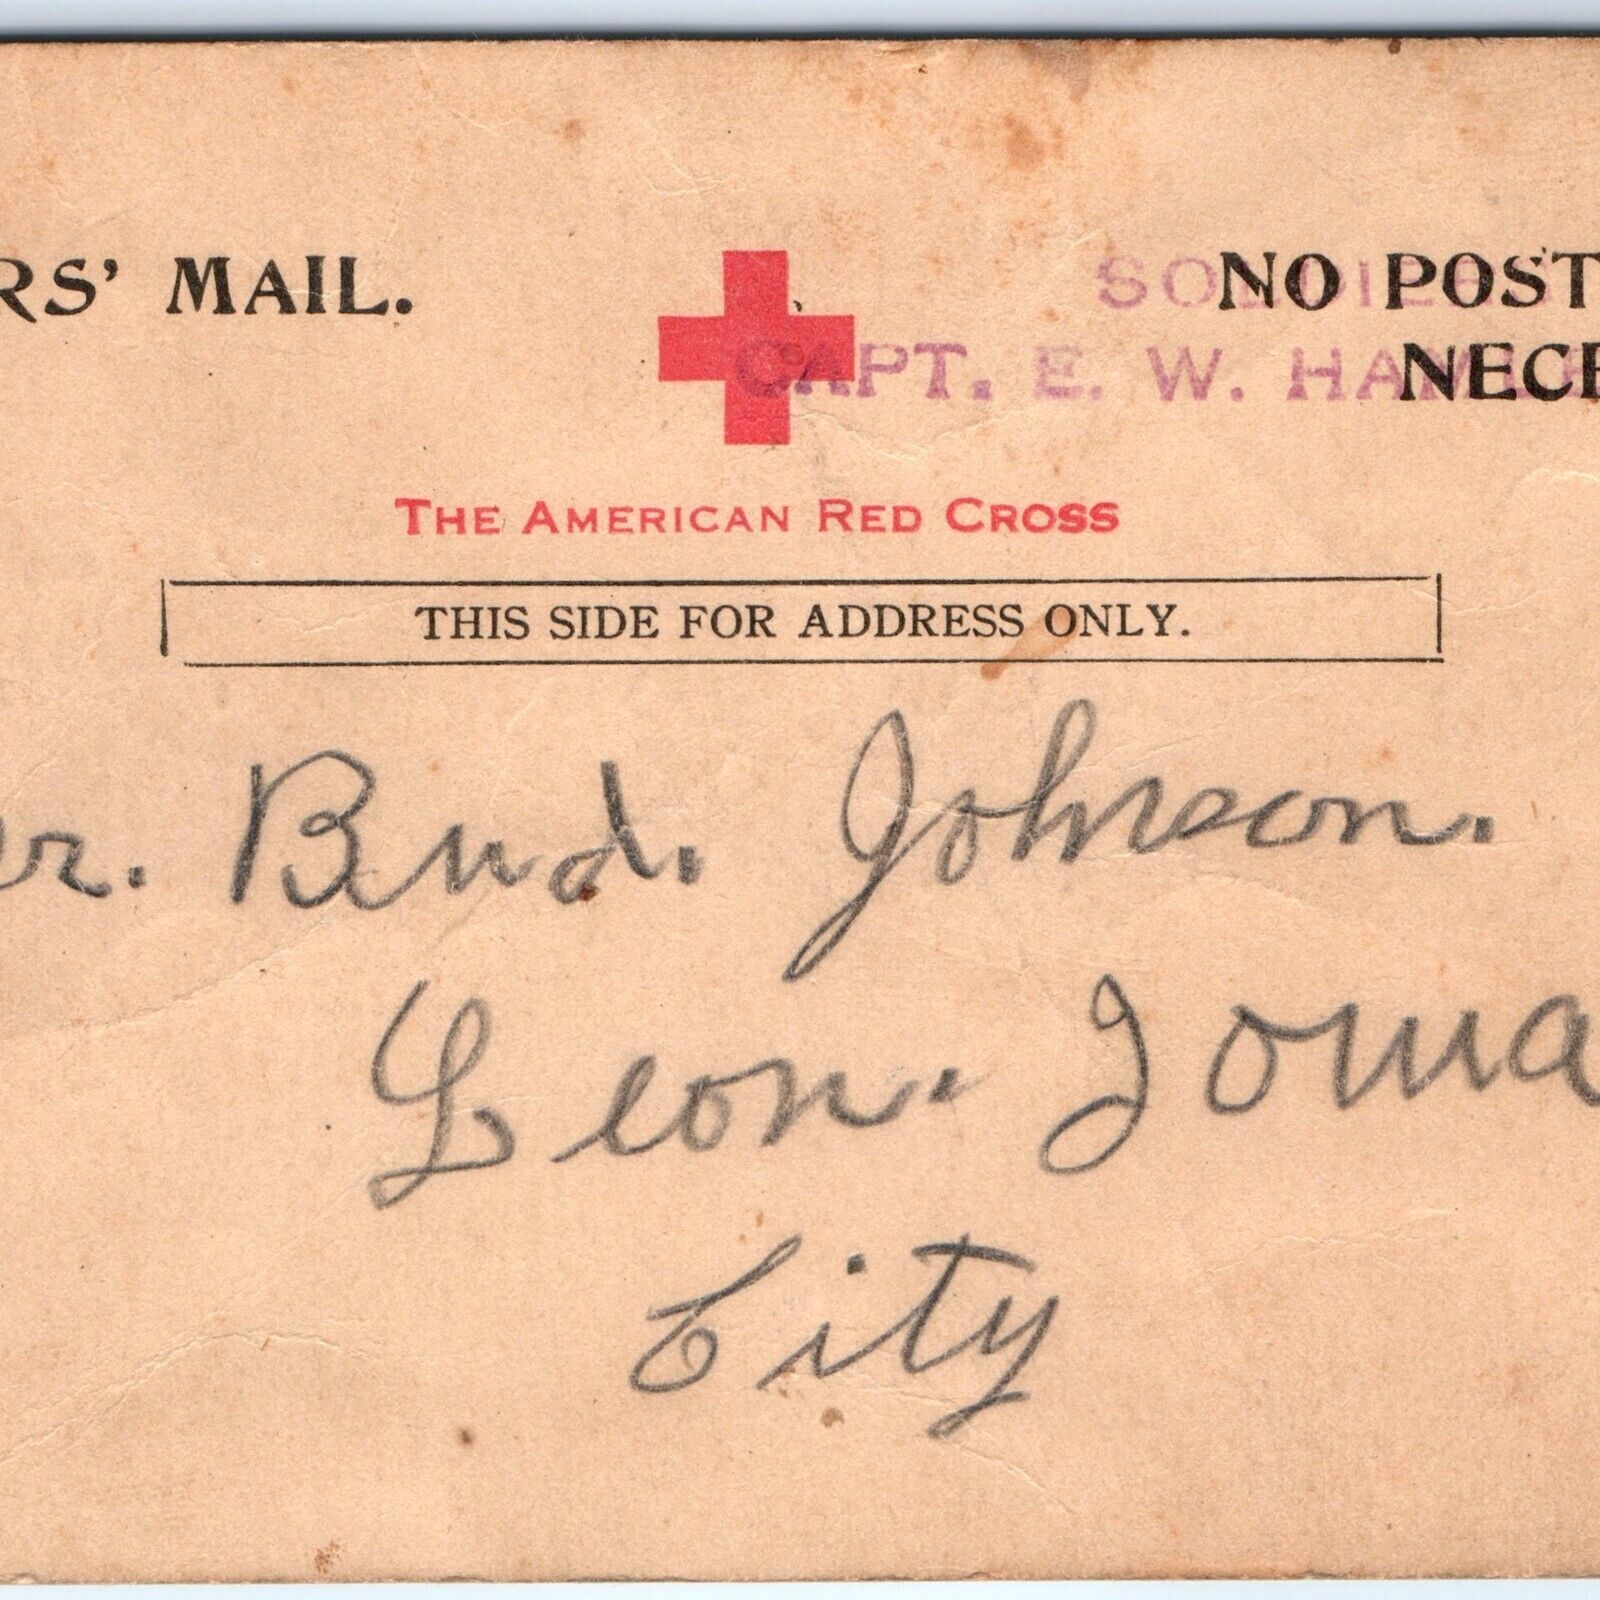 RS' MAIL.
NO POST
SOLDIE
CAPT. E. W. HAMLE
NECE
THE AMERICAN RED CROSS
THIS SIDE FOR ADDRESS ONLY.
r. Bud. Johnson.
Leon. Iowa
City